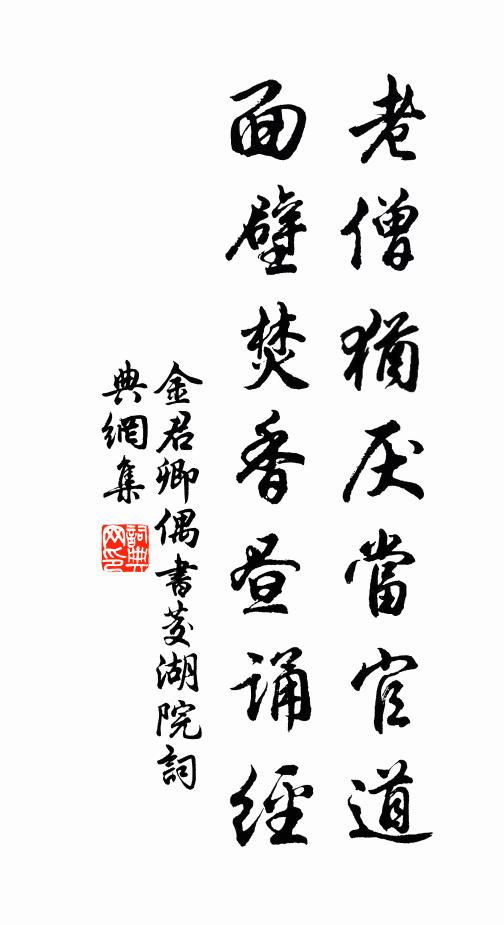 老僧猶厌當官道
面壁焚香昼诵經
金君卿偶書芰湖院詞
典網集
詞典
网印